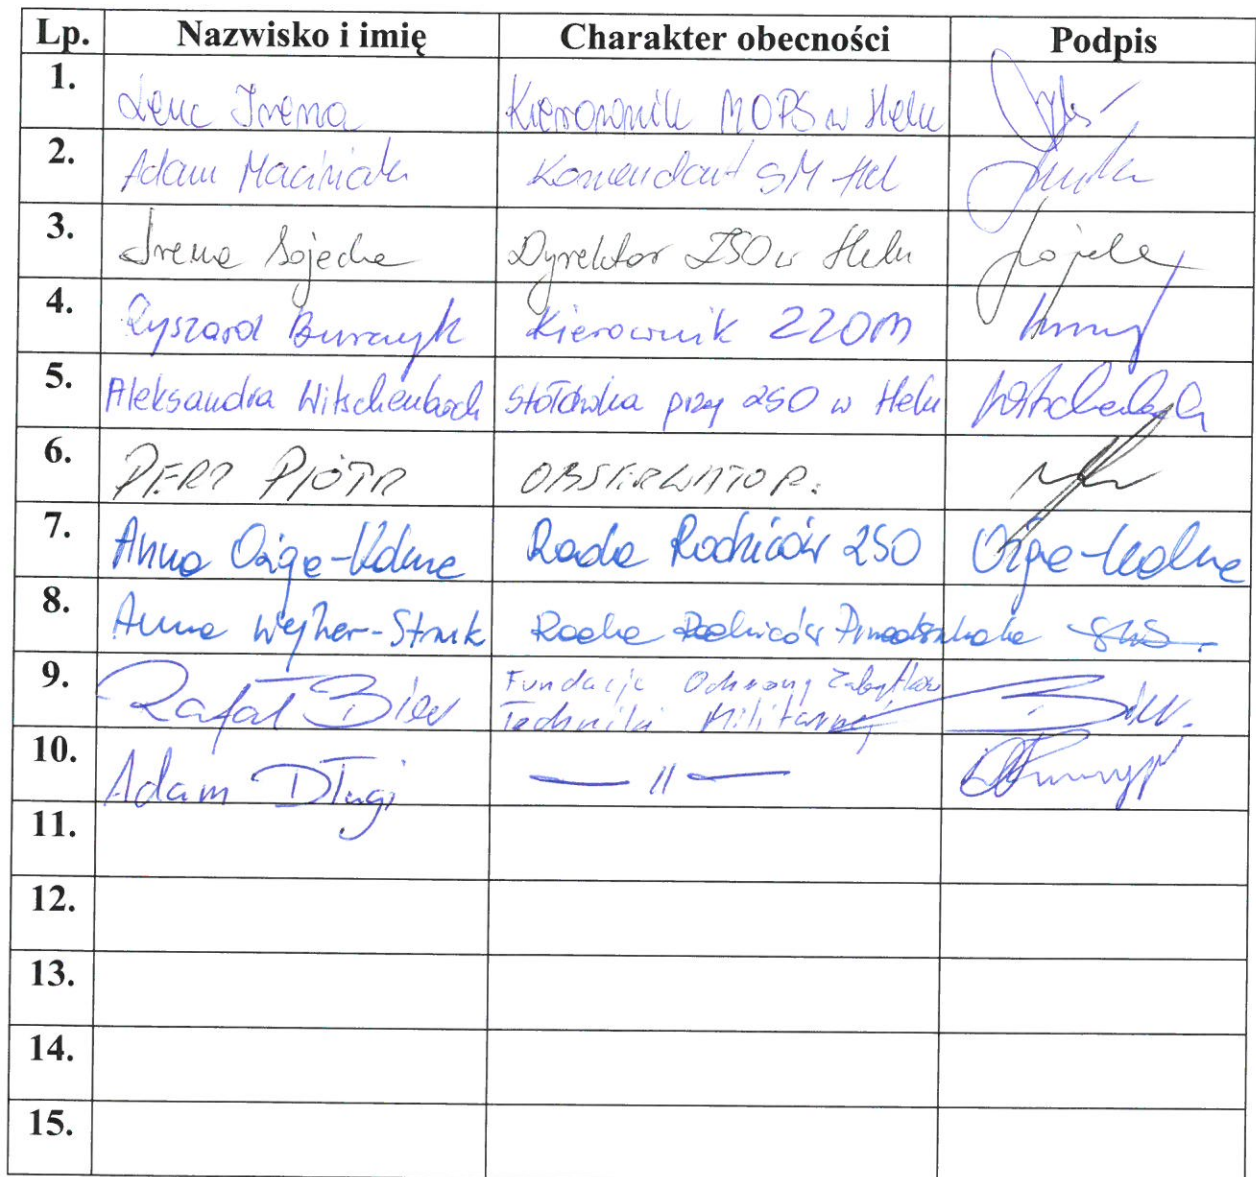 Lp. Nazwisko i imię Charakter obecności Podpis
1. Lenc Irena Kierownik MOPS w Helu
2. Adam Maciniak Komendant SM Hel
3. Irena Sojecka Dyrektor ZSO w Helu
4. Ryszard Burczyk Kierownik ZZOM
5. Aleksandra Witschenbach Stołówka przy ZSO w Helu
6. PERZ PIOTR OBSERWATOR.
7. Anna Ożga-Kolme Rada Rodziców ZSO
8. Anna Wejher-Struk Rada Rodziców Przedszkola
9. Rafał Biler Fundacja Ochrony Zabytków
Techniki Militarnej
10. Adam Długi — 11 —
11.
12.
13.
14.
15.